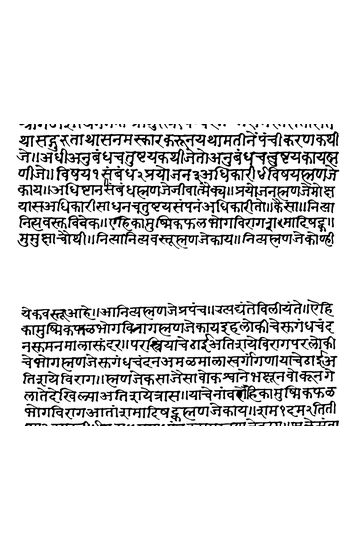 थासद्गुरुताथासनमस्कारकरूनयथामतीनेंपंचीकरणकथी
जे॥अधीअनुबंधचतुष्टयकथीजेतोअनुबंधचतुष्टयकायह्म
णीजे॥विषय१संबंध२प्रयोजन३अधिकारी४विषयह्मणजे
काय॥अधिष्टानसंबंधह्मणजेजीवात्मैक्य॥प्रयोजनह्मणजेमोक्ष
यासअधिकारीसाधनचतुष्टयसंपन्नअधिकारीतो॥कैसा॥नित्या
नित्यवस्तविवेक॥ऐहिकामुष्मिकफलभोगविरागशमादिषट्क॥
मुमुक्षाचौथी॥नित्यानित्यवस्तूह्मणजेकाय॥नित्यह्मणजेकोण्ही
येकवस्तूआहे॥आनित्यह्मणजेप्रपंच॥उत्पद्यंतेविलीयंते॥ऐहि
कामुष्मिकफळभोगविरागह्मणजेकायइहलोकीचेस्रगचंद
नस्रकमनमाळासुंदर॥परस्त्रियाचेठाईअतिशयेविरागपरलोकी
चेभोगह्मणजेस्रगंधचंदनअमळमाळास्वर्गांगणायाचेठाईअ
तिशयेविराग॥ह्मणजेकसाजैसावोकश्वानेंभक्षूनवोकूनगे
लातेदेखिल्याअतिशयेत्रास॥याचेनांवऐहिकामुष्मिकफळ
भोगविरागआतांशमादिषट्कह्मणजेकाय॥शम१दम२तिती